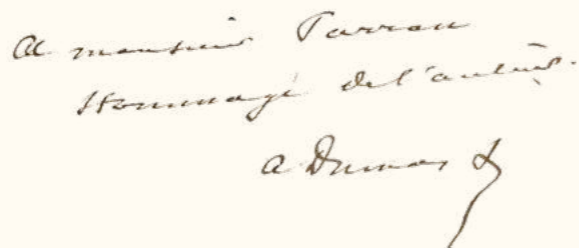 A monsieur Parran
Hommage de l'auteur.
A Dumas